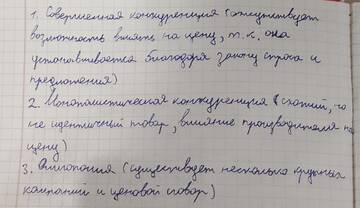 1. Совершенная конкуренция (отсутствует
возможность влиять на цену, т.к. она
устанавливается благодаря закону спроса и
предложения)
2. Монополистическая конкуренция (схожий, но
не идентичный товар, влияние производителя на
цену)
3. Олигополия (существует несколько крупных
компаний и ценовой товар)